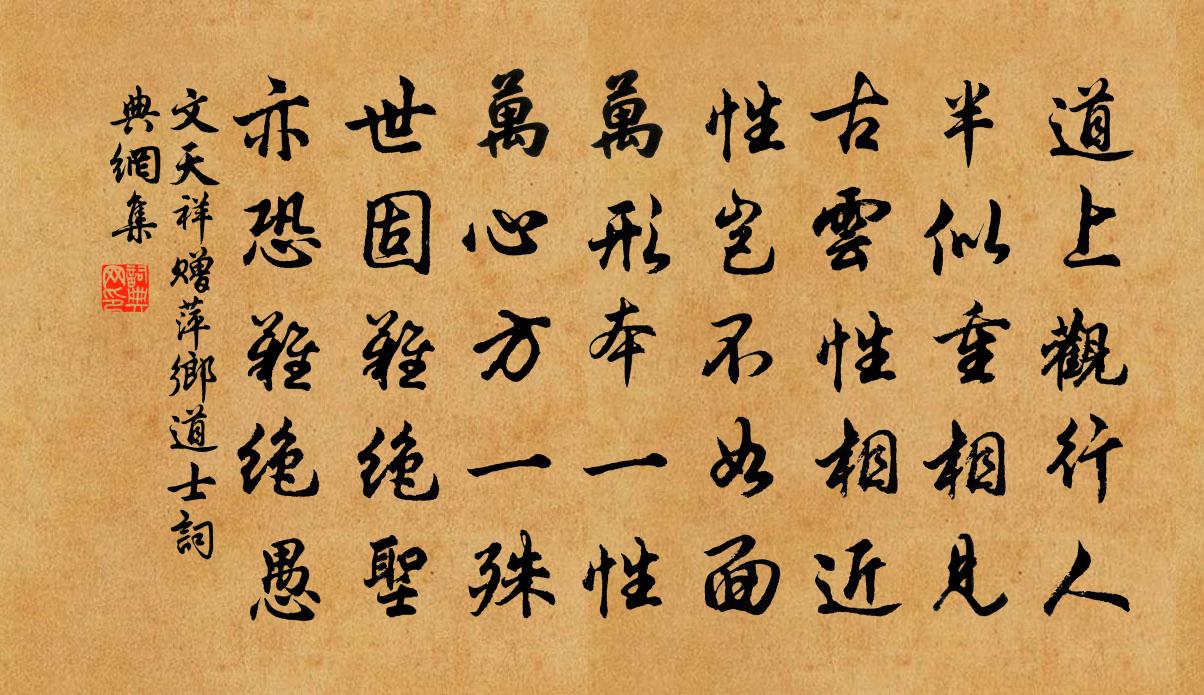 道上觀行人
半似重相見
古雲性相近
性豈不如面
萬形本一性
萬心方一殊
世固難絕聖
亦恐難絕愚
文天祥贈萍鄉道士詞
典網集
詞典網印